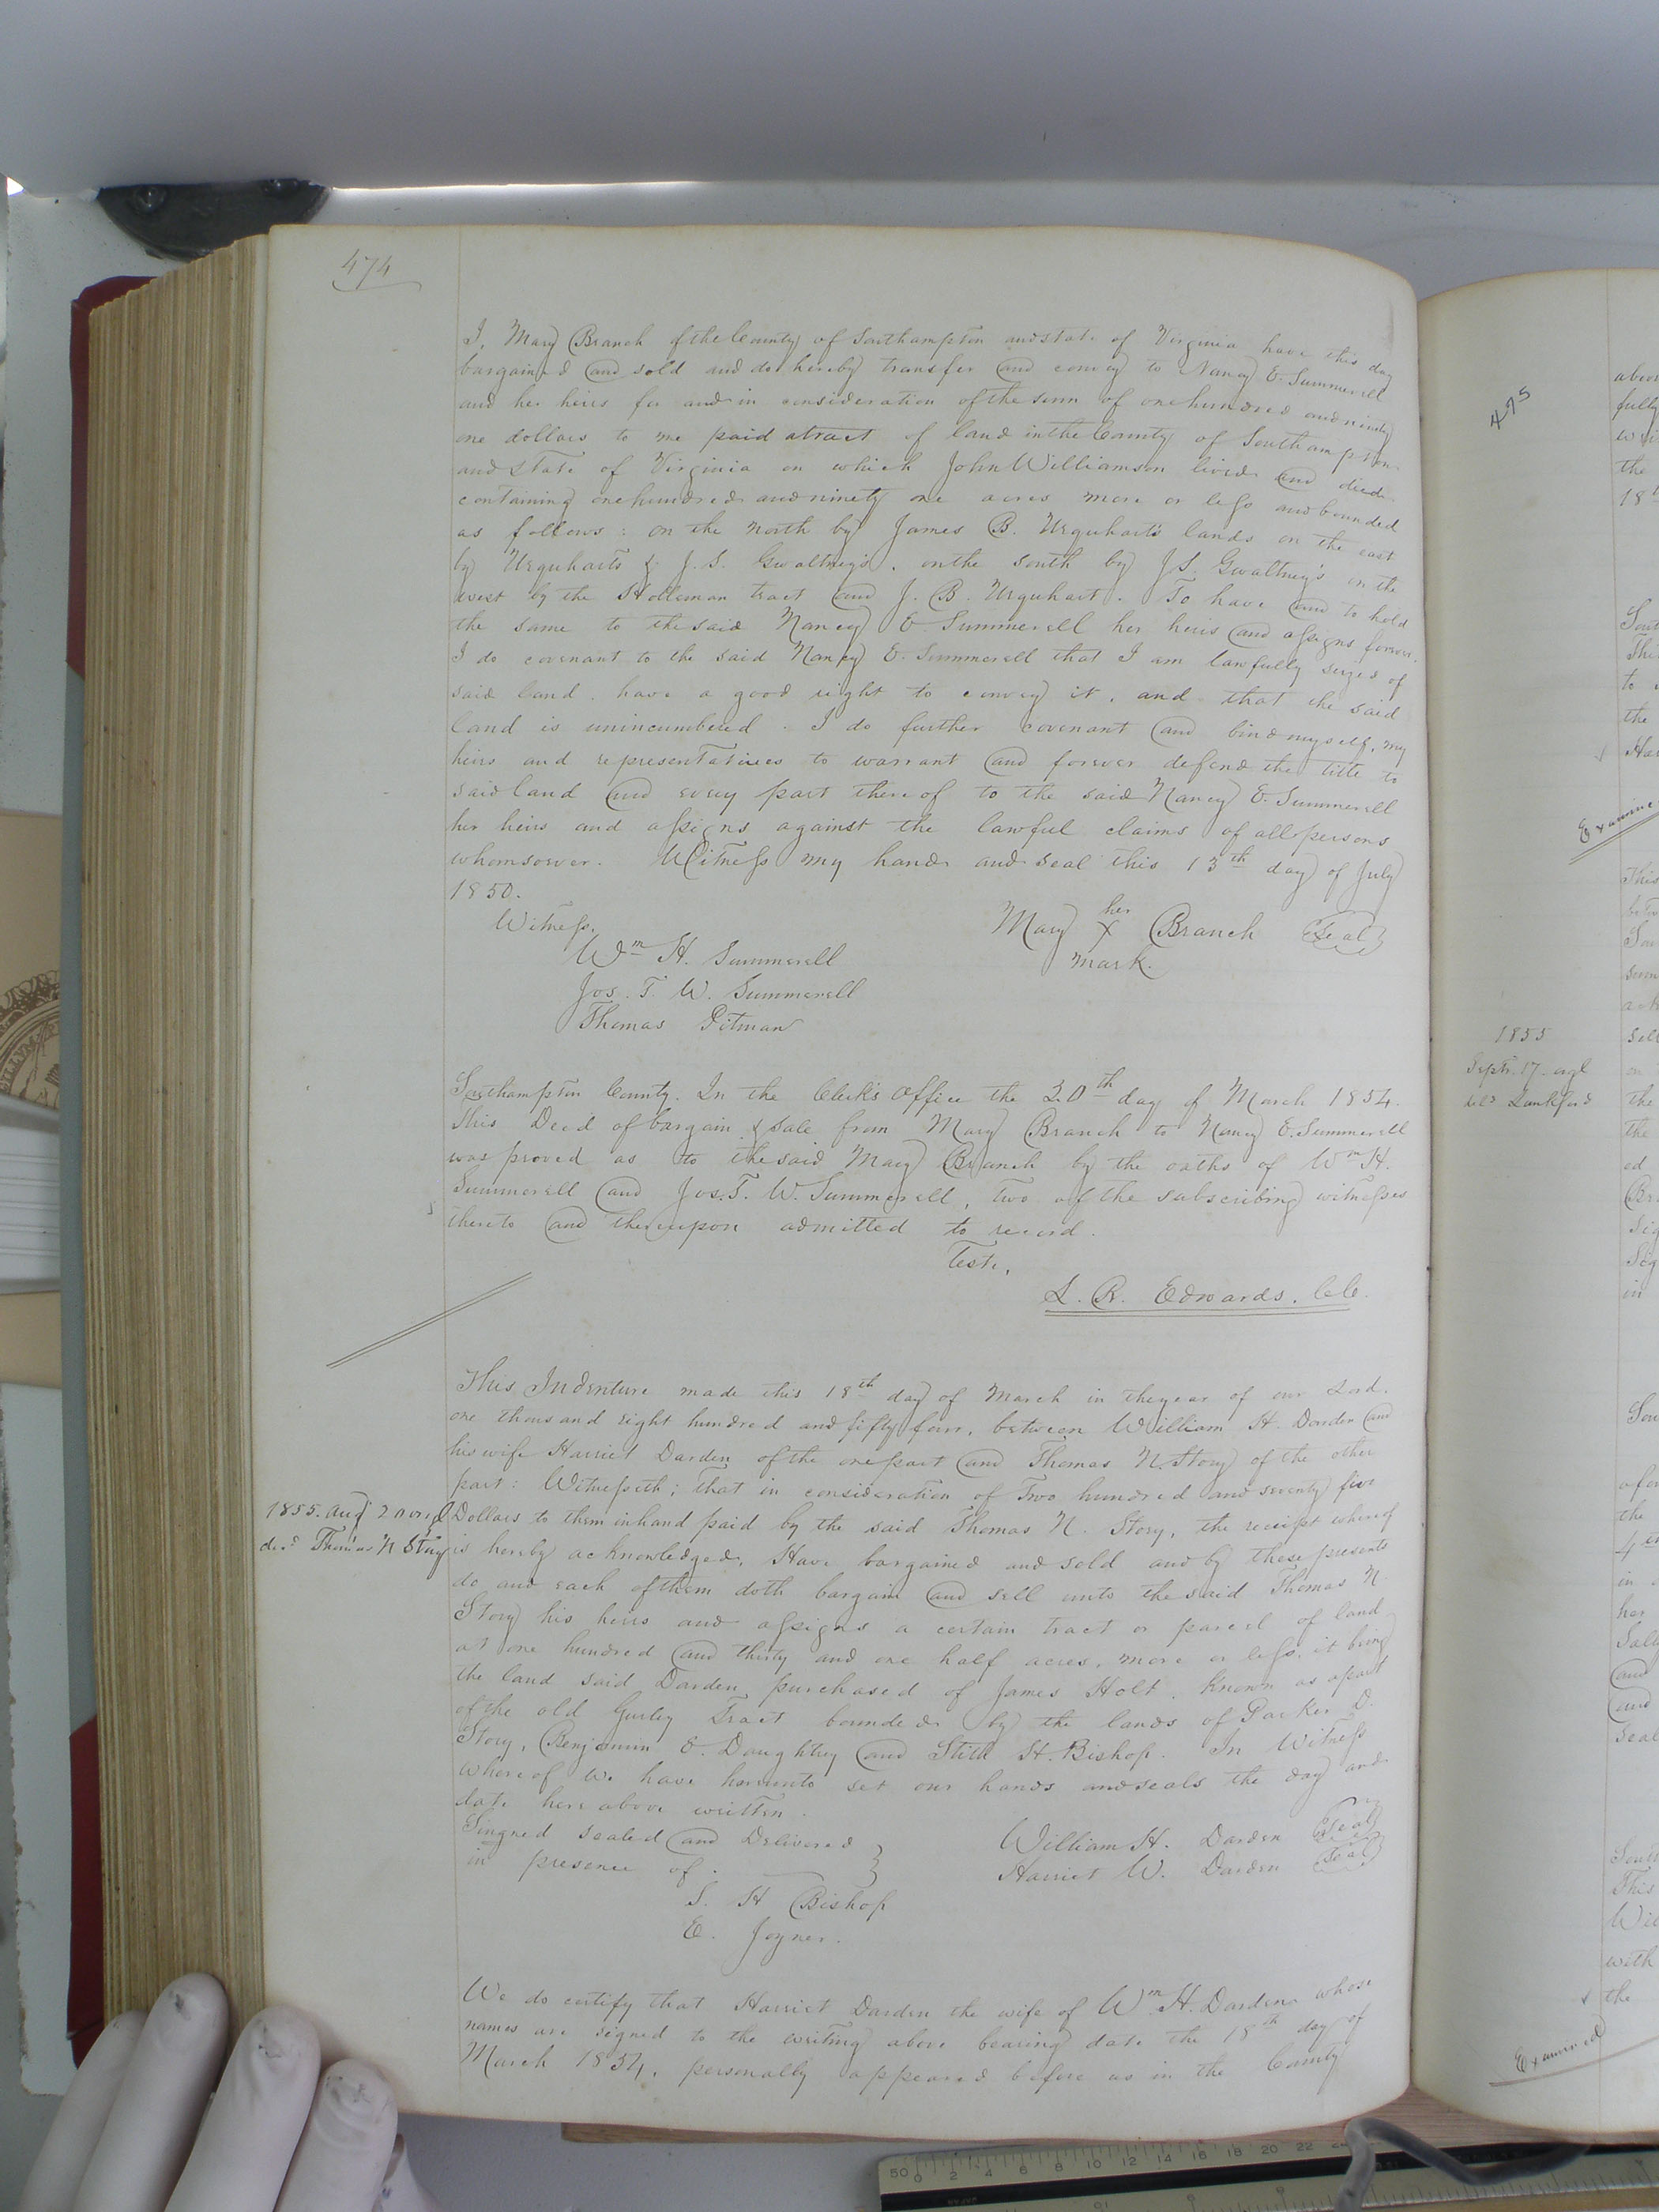 474
I, Mary Branch of the County of Southampton and state of Virginia have this day
bargained and sold and do hereby transfer and convey to Nancy E. Summerell
and her heirs for and in consideration of the sum of one hundred and ninety
one dollars to me paid a tract of land in the County of Southampton
and State of Virginia on which John Williamson lived and died
containing one hundred and ninety one acres more or less and bounded
as follows: on the north by James B. Urquhart's lands on the east
by Urquharts & J. S. Gwaltney's, on the south by J S. Gwaltney's on the
west by the Holleman tract and J. B. Urquhart. To have and to hold
the same to the said Nancy E Summerell her heirs and assigns forever.
I do covenant to the said Nancy E. Summerell that I am lawfully seized of
said land. have a good right to convey it, and that the said
land is unincumbered. I do further covenant and bind myself, my
heirs and representatives to warrant and forever defend the title to
said land and every part thereof to the said Nancy E. Summerell
her heirs and assigns against the lawful claims of all persons
whomsoever. Witness my hand and seal this 13th day of July
1850.
Witness.
Mary her X mark. Branch Seal
Wm H. Summerell
Jos. T. W. Summerell
Thomas Pitman
Southampton County. In the Clerk's Office the 20th day of March 1854.
This Deed of bargain & sale from Mary Branch to Nancy E. Summerell
was proved as to the said Mary Branch by the oaths of Wm H.
Summerell and Jos. T. W. Summerell, two of the subscribing witnesses
thereto and thereupon admitted to record.
Teste,
L. R. Edwards. CC.
This Indenture made this 18th day of March in the year of our Lord.
one thousand eight hundred and fifty four, between William H. Darden and
his wife Harriet Darden of the one part and Thomas N. Story of the other
part: Witnesseth; that in consideration of Two hundred and seventy five
1855. Aug 2 origl
Dollars to them in hand paid by the said Thomas N. Story, the receipt whereof
Thomas N Story
is hereby acknowledged, Have bargained and sold and by these presents
do and each of them doth bargain and sell unto the said Thomas N.
Story his heirs and assigns a certain tract or parcel of land
at one hundred and thirty and one half acres, more or less, it being
the land said Darden purchased of James Holt. Known as apart
of the old Gurley Tract bounded by the lands of Parker D.
Story, Benjamin E. Daughtrey and Stith H. Bishop. In Witness
whereof we have hereunto set our hands and seals the day and
date here above written.
Singned sealed and Delivered
in presence of.
William H. Darden Seal
Harriet W. Darden Seal
S. H Bishop
E. Joyner.
We do certify that Harriet Darden the wife of Wm H. Darden whose
names are signed to the writing above bearing date the 18th day of
March 1854, personally appeared before us in the County
475
Examine
1855
Septr. 17. origl
deld Lankford
Examined